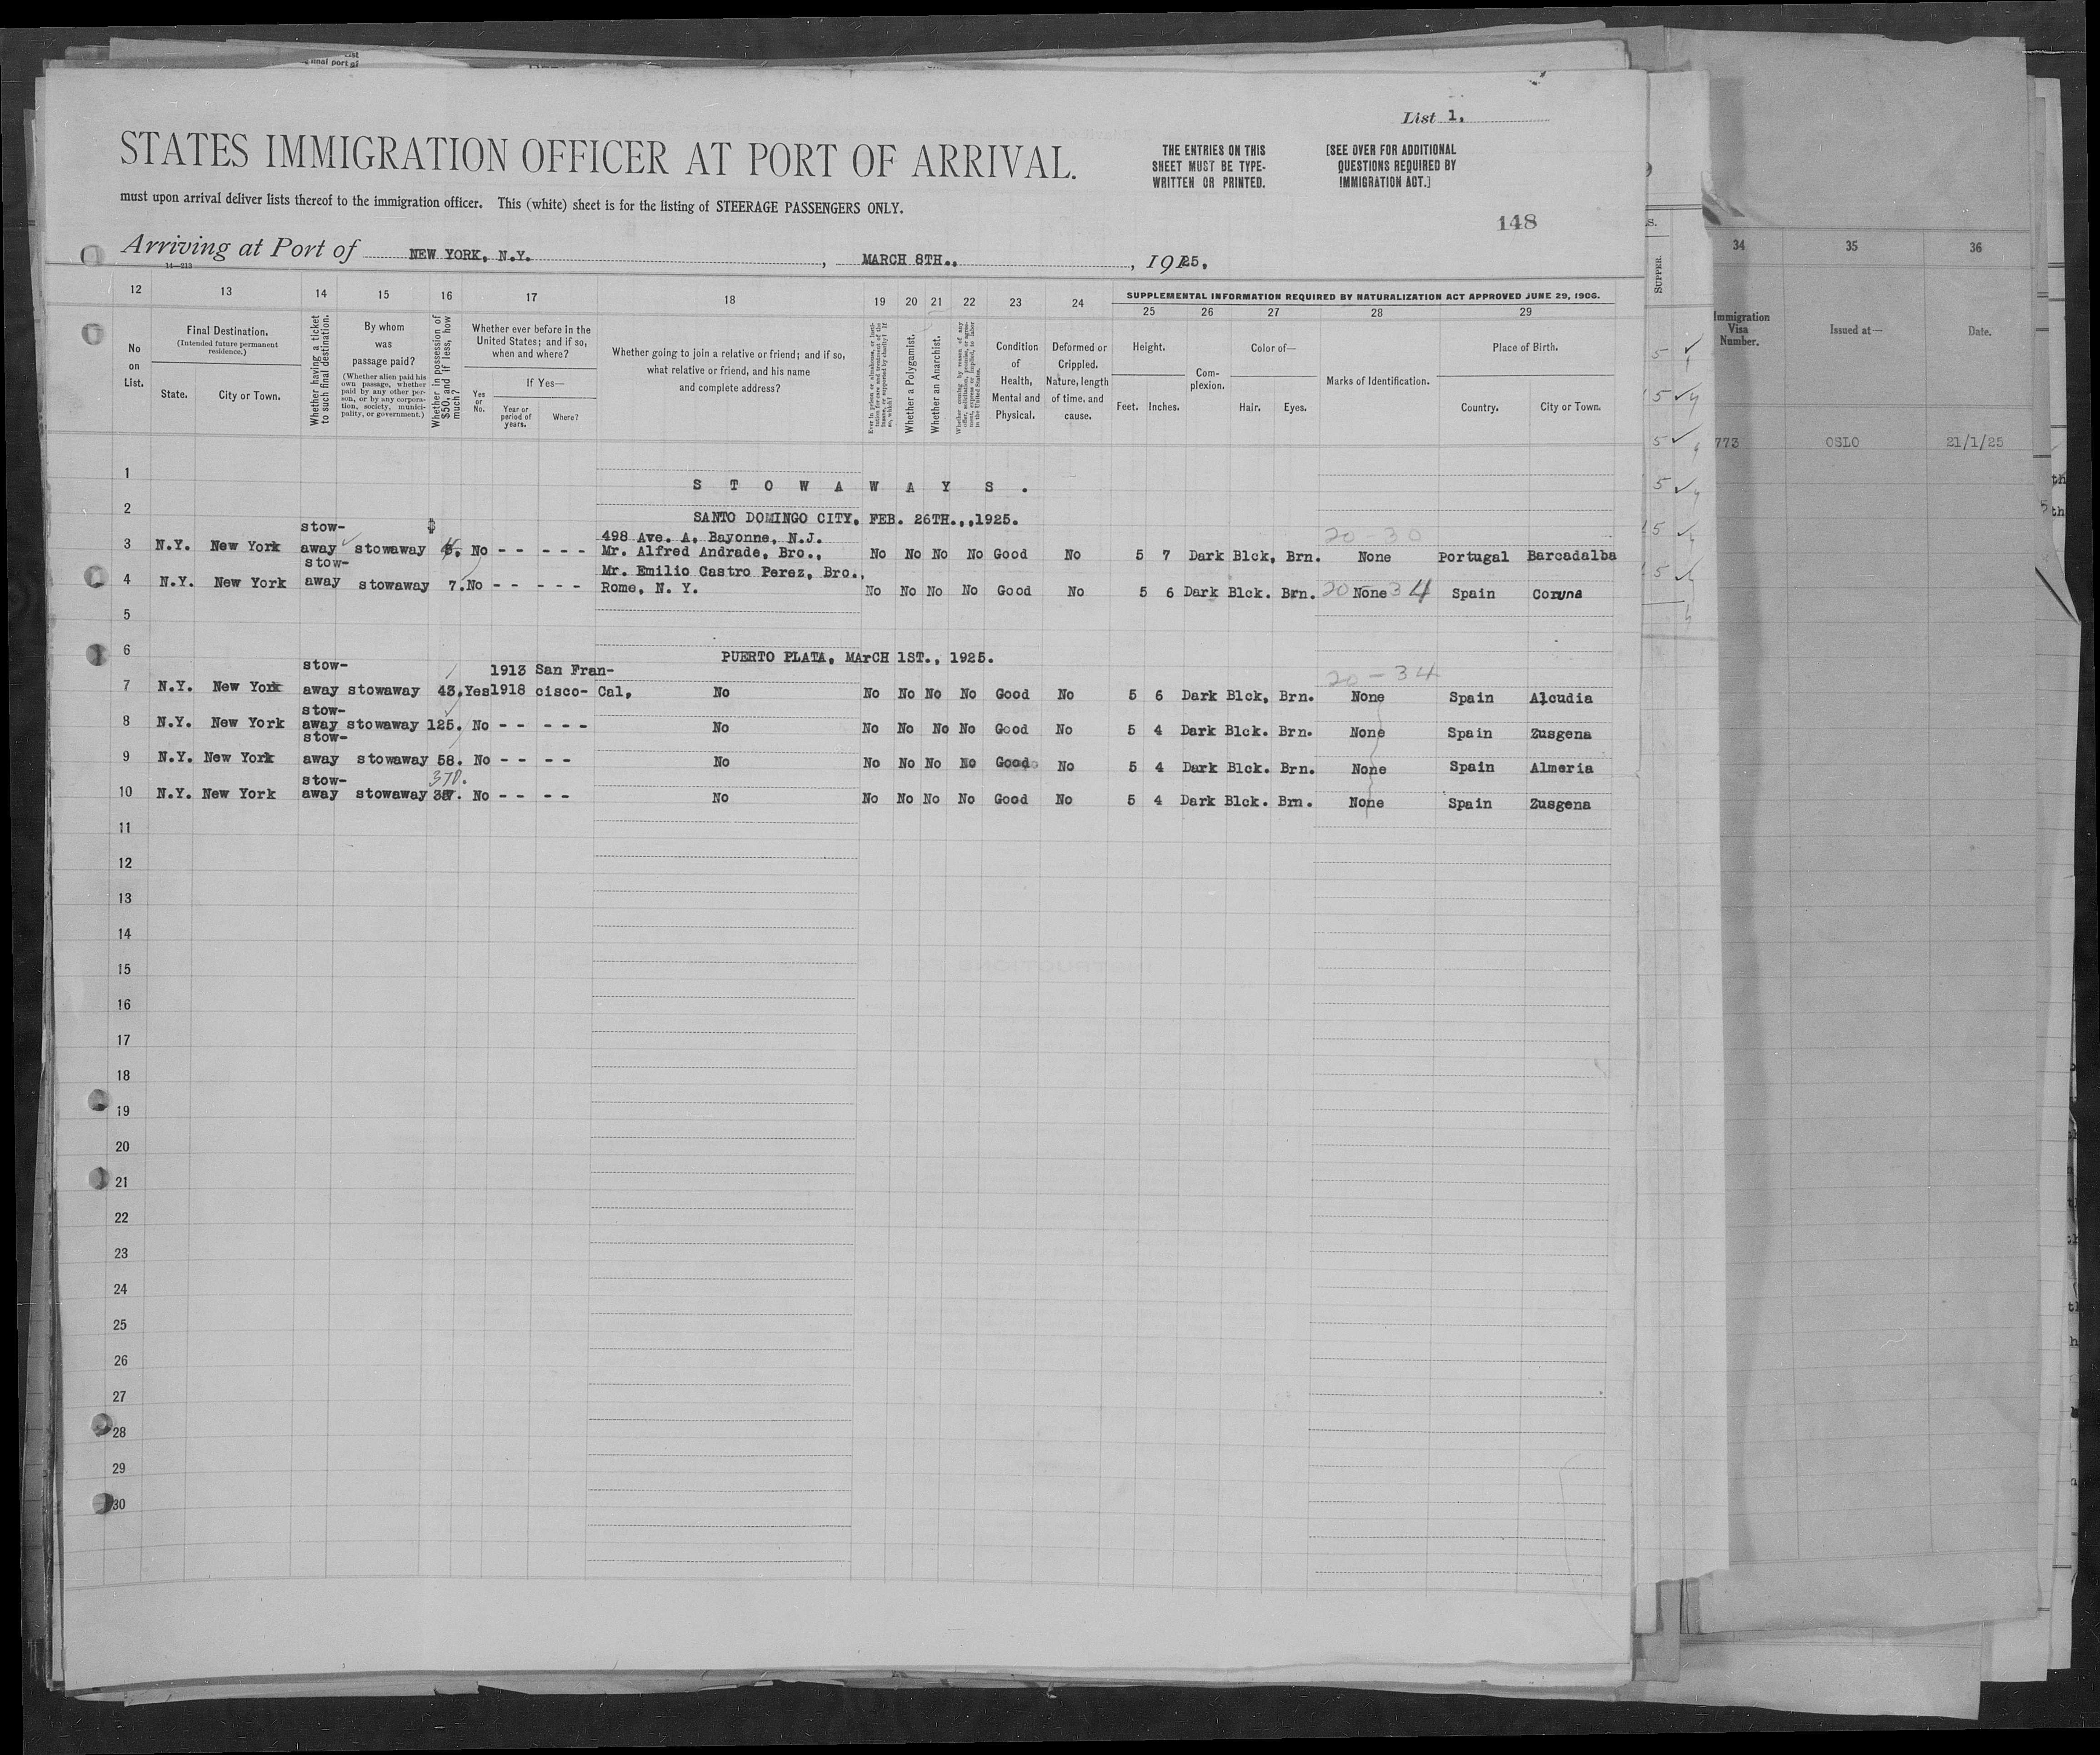 List 1.
STATES IMMIGRATION OFFICER AT PORT OF ARRIVAL.
THE ENTRIES ON THIS SHEET MUST BE TYPE-WRITTEN OR PRINTED.
[SEE OVER FOR ADDITIONAL QUESTIONS REQUIRED BY IMMIGRATION ACT.]
must upon arrival deliver lists thereof to the immigration officer. This (white) sheet is for the listing of STEERAGE PASSENGERS ONLY.
148
Arriving at Port of NEW YORK, N.Y. , MARCH 8TH., , 1925.
14—213
12 13 14 15 16 17 18 19 20 21 22 23 24
SUPPLEMENTAL INFORMATION REQUIRED BY NATURALIZATION ACT APPROVED JUNE 29, 1906.
25 26 27 28 29
No on List.
Final Destination.
(Intended future permanent residence.)
State. City or Town.
Whether having a ticket to such final destination.
By whom was passage paid?
(Whether alien paid his own passage, whether paid by any other person, or by any corporation, society, municipality, or government.)
Whether in possession of $50, and if less, how much?
Whether ever before in the United States; and if so, when and where?
Yes or No.
If Yes—
Year or period of years. Where?
Whether going to join a relative or friend; and if so, what relative or friend, and his name and complete address?
Whether a Polygamist.
Whether an Anarchist.
Condition of Health, Mental and Physical.
Deformed or Crippled. Nature, length of time, and cause.
Height.
Feet. Inches.
Complexion.
Color of—
Hair. Eyes.
Marks of Identification.
Place of Birth.
Country. City or Town.
1
S T O W A W A Y S .
2
SANTO DOMINGO CITY, FEB. 26TH.,,1925.
stow- $ 498 Ave. A, Bayonne, N.J. 20-30
3 N.Y. New York away stowaway No - - - - - Mr. Alfred Andrade, Bro., No No No No Good No 5 7 Dark Blck, Brn. None Portugal Barcadalba
stow- Mr. Emilio Castro Perez, Bro.,
4 N.Y. New York away stowaway 7. No - - - - - Rome, N. Y. No No No No Good No 5 6 Dark Blck. Brn. 20 None 34 Spain Coruna
5
6
PUERTO PLATA, MArCH 1ST., 1925.
stow- 1913 San Fran- 20-34
7 N.Y. New York away stowaway 43. Yes 1918 cisco- Cal, No No No No No Good No 5 6 Dark Blck, Brn. None Spain Alcudia
stow-
8 N.Y. New York away stowaway 125. No - - - - - No No No No No Good No 5 4 Dark Blck. Brn. None Spain Zusgena
stow-
9 N.Y. New York away stowaway 58. No - - - - No No No No No Good No 5 4 Dark Blck. Brn. None Spain Almeria
stow- 370.
10 N.Y. New York away stowaway No - - - - No No No No No Good No 5 4 Dark Blck. Brn. None Spain Zusgena
11
12
13
14
15
16
17
18
19
20
21
22
23
24
25
26
27
28
29
30
SUPPER.
34 35 36
Immigration Visa Number. Issued at— Date.
773 OSLO 21/1/25